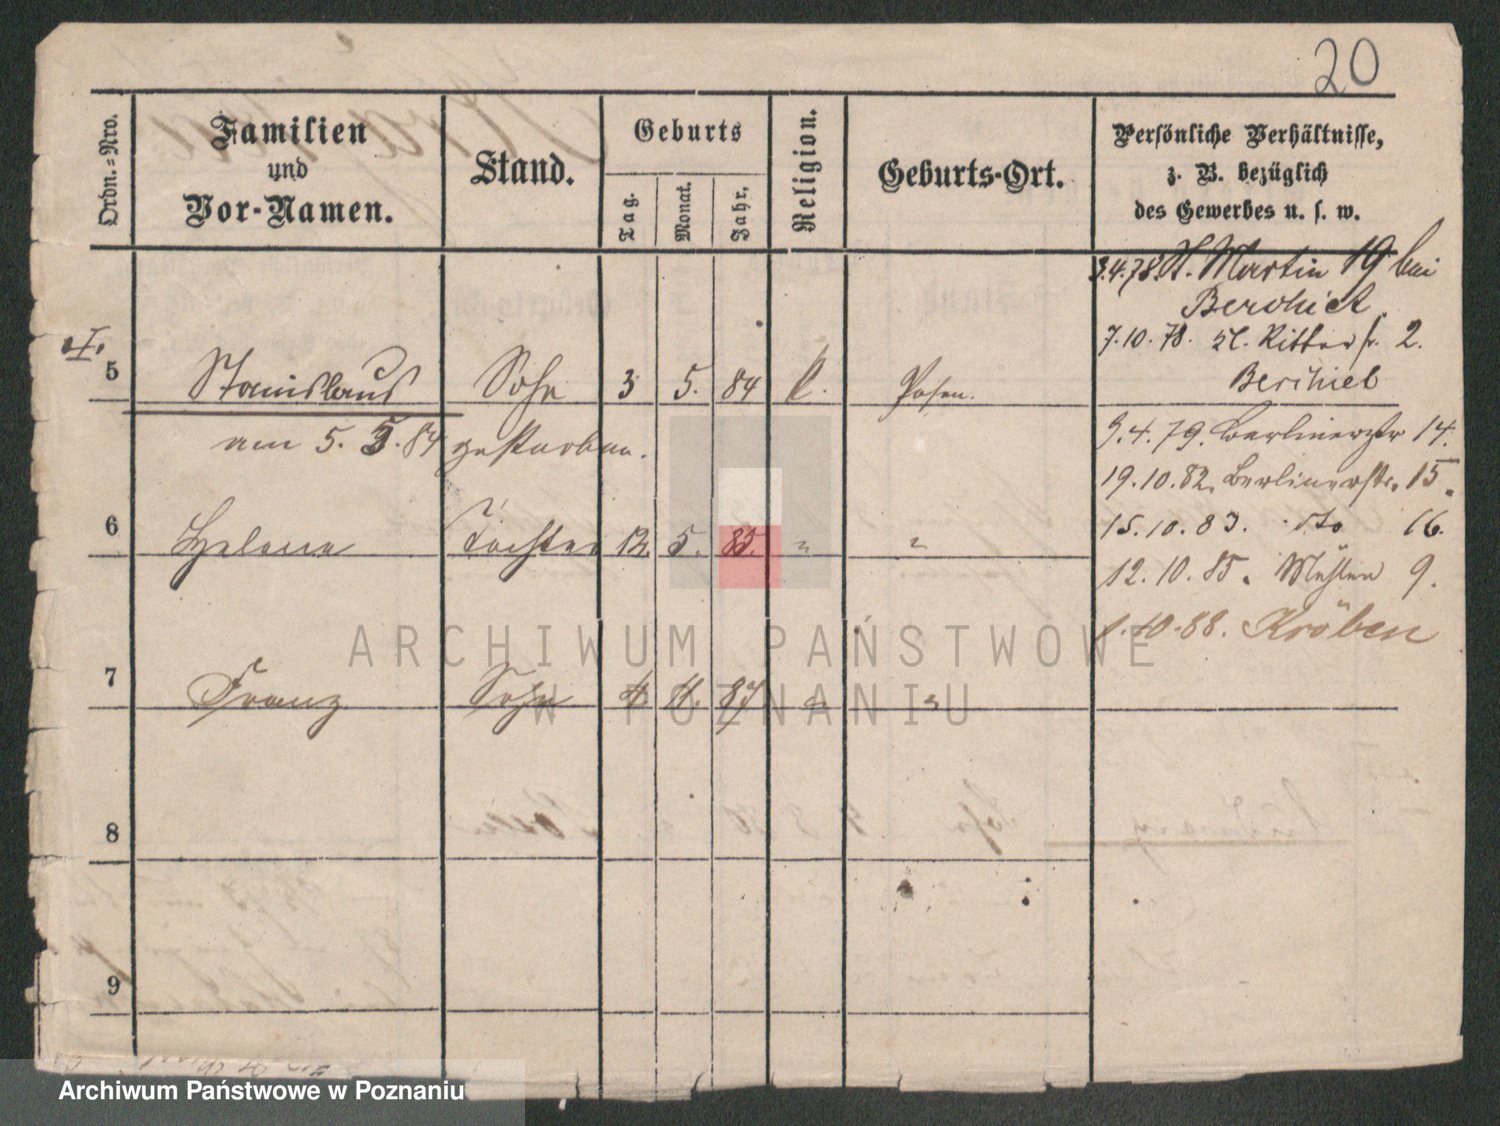 20
Ordn.=Nro.
Familien
und
Vor-Namen.
Stand.
Geburts
Tag.
Monat.
Jahr.
Religion.
Geburts-Ort.
Persönliche Verhältnisse,
z. B. bezüglich
des Gewerbes u. s. w.
3.4.78. St. Martin 19 bei
7.10.78. St. Ritterstr. 2.
5 Stanislaus Sohn 3 5. 84 k. Posen.
am 5. 5. 84 gestorben.
9.4.79. Berlinerstr 14.
19.10.82. Berlinerstr. 15.
6 Helene Tochter 12. 5. 85. " "
15.10.83. dto 16.
12.10.85. Mühlen 9.
1.10.88. Kröben
7 Franz Sohn 4 11. 87 " "
8
9
ARCHIWUM PAŃSTWOWE
W POZNANIU
Archiwum Państwowe w Poznaniu